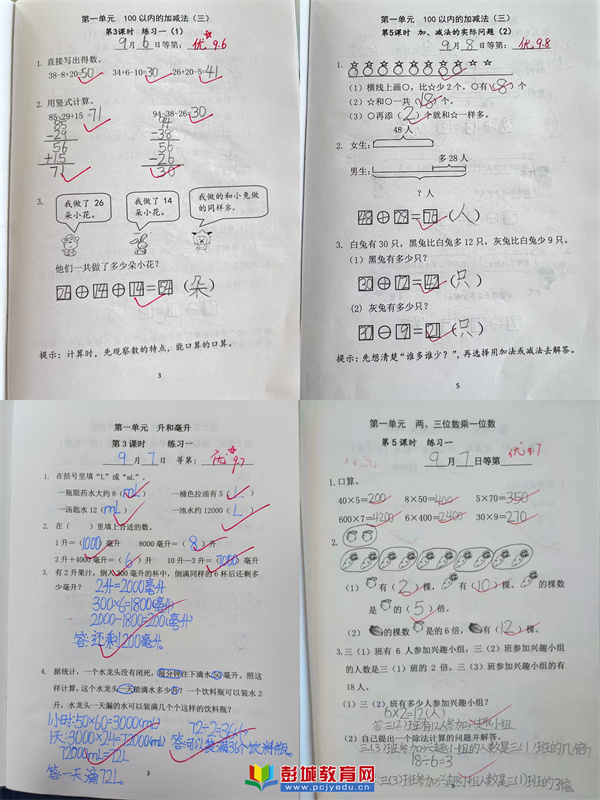 第一单元 100 以内的加减法（三）
第3课时 练习一（1）
9月6日等第: 优 9.6
1. 直接写出得数。
38-8+20=50 34+6-10=30 26+20-5=41
2. 用竖式计算。
85-29+15=71 94-38-26=30
85 94
-29 -38
56 56
+15 -26
71 30
3.
我做了 26 朵小花。
我做了 14 朵小花。
我做的和小兔做的同样多。
他们一共做了多少朵小花?
26+14+14=54（朵）
提示: 计算时, 先观察数的特点, 能口算的口算。
3
第一单元 100 以内的加减法（三）
第5课时 加、减法的实际问题（2）
9月8日等第: 优 9.8
1.
（1）横线上画○, 比☆少 2 个。○有（8）个
（2）☆和○一共（18）个。
（3）○再添（2）个就和☆一样多。
2. 女生:
48 人
多 28 人
男生:
? 人
48+28=76（人）
3. 白兔有 30 只, 黑兔比白兔多 12 只, 灰兔比白兔少 9 只。
（1）黑兔有多少只?
30+12=42（只）
（2）灰兔有多少只?
=21（只）
提示: 先想清楚“谁多谁少?”, 再选择用加法或减法去解答。
5
第一单元 升和毫升
第3课时 练习一
9月7日 等第: 优 9.7
1. 在括号里填“L”或“mL”。
一瓶眼药水大约 8（mL） 一桶色拉油有 5（L）
一汤匙水 12（mL） 一池水约 12000（L）
2. 在（ ）里填上合适的数。
1 升=（1000）毫升 8000 毫升=（8）升
2 升+4000 毫升=（6）升 10 升-3 升=（7000）毫升
3. 有 2 升果汁, 倒入 300 毫升的杯中, 倒满同样的 6 杯后还剩多
少毫升?
2升=2000毫升
300×6=1800(毫升)
2000-1800=200(毫升)
答:还剩200毫升。
4. 据统计, 一个水龙头没有闭死, 每分钟往下滴水 50 毫升。照这
样计算, 这个水龙头一天能滴水多少升? 一个饮料瓶可以装水 2
升, 水龙头一天漏的水可以装满几个这样的饮料瓶?
1小时:50×60=3000(mL)
1天:3000×24=72000(mL)
72000mL=72L
答:一天滴72L。
72÷2=36(个)
答:可以装满36个饮料瓶。
3
第一单元 两、三位数乘一位数
第5课时 练习一
9月7日等第 优 9.7
1. 口算。
40×5=200 8×50=400 5×70=350
600×7=4200 6×400=2400 30×9=270
2.
（1）有（2）棵, 有（10）棵。的棵数
是的（5）倍。
（2）的棵数是的 6 倍, 有（12）棵。
3. 三（1）班有 6 人参加兴趣小组, 三（2）班参加兴趣小组
的人数是三（1）班的 2 倍。三（3）班参加兴趣小组的有
18 人。
（1）三（2）班有多少人参加兴趣小组?
6×2=12(人)
答:三(2)班有12人参加兴趣小组
（2）自己提出一个除法计算的问题并解答。
三(3)班参加兴趣小组的人数是三(1)班的几倍?
18÷6=3
答:三(3)班参加兴趣小组人数是三(1)班的3倍。
彭城教育网
www.pcjyedu.cn